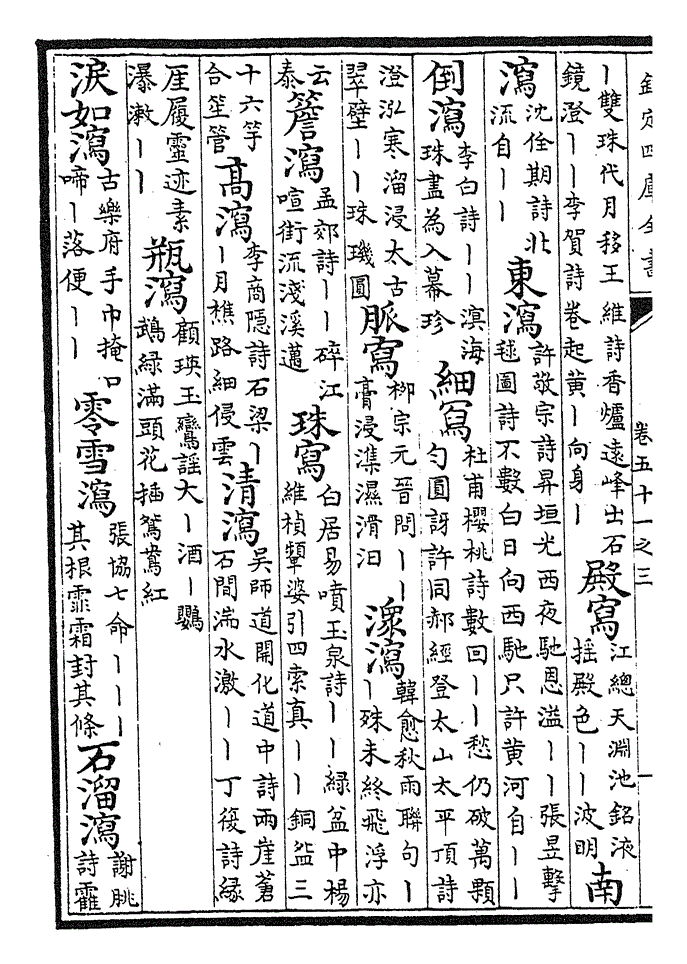 欽定四庫全書 卷五十一之三 一
丨雙珠代月移王維詩香爐遠峰出石鏡澄丨丨李賀詩卷起黄丨向身丨殿寫江總天淵池銘液揺殿色丨丨波明南
瀉沈佺期詩北流自丨丨東瀉許敬宗詩昇垣光西夜馳恩溢丨丨張昱擊毬圖詩不數白日向西馳只許黄河自丨丨
倒瀉李白詩丨丨溟海珠盡為入幕珍細寫杜甫櫻桃詩數回丨丨愁仍破萬顆匀圓訝許同郝經登太山太平頂詩
澄泓寒溜浸太古翠壁丨丨珠璣圓脈寫柳宗元晉問丨丨膏浸潗濕滑汩潨瀉韓愈秋雨聯句丨丨殊未終飛浮亦
云泰簷瀉孟郊詩丨丨碎江喧街流淺溪邁珠寫白居易噴玉泉詩丨丨緑盆中楊維楨顰婆引四索真丨丨銅盆三
十六竽合笙管高瀉李商隱詩石梁丨丨月樵路細侵雲清瀉吳師道開化道中詩兩崖蒼石間湍水激丨丨丁復詩縁
厓履靈迹素瀑漱丨丨瓶瀉顧瑛玉鸞謡大丨酒丨鸚鵡緑滿頭花插鴛鴦紅
淚如瀉古樂府手巾掩口啼丨落便丨丨零雪瀉張協七命丨丨丨其根霏霜封其條石溜瀉謝朓詩霍